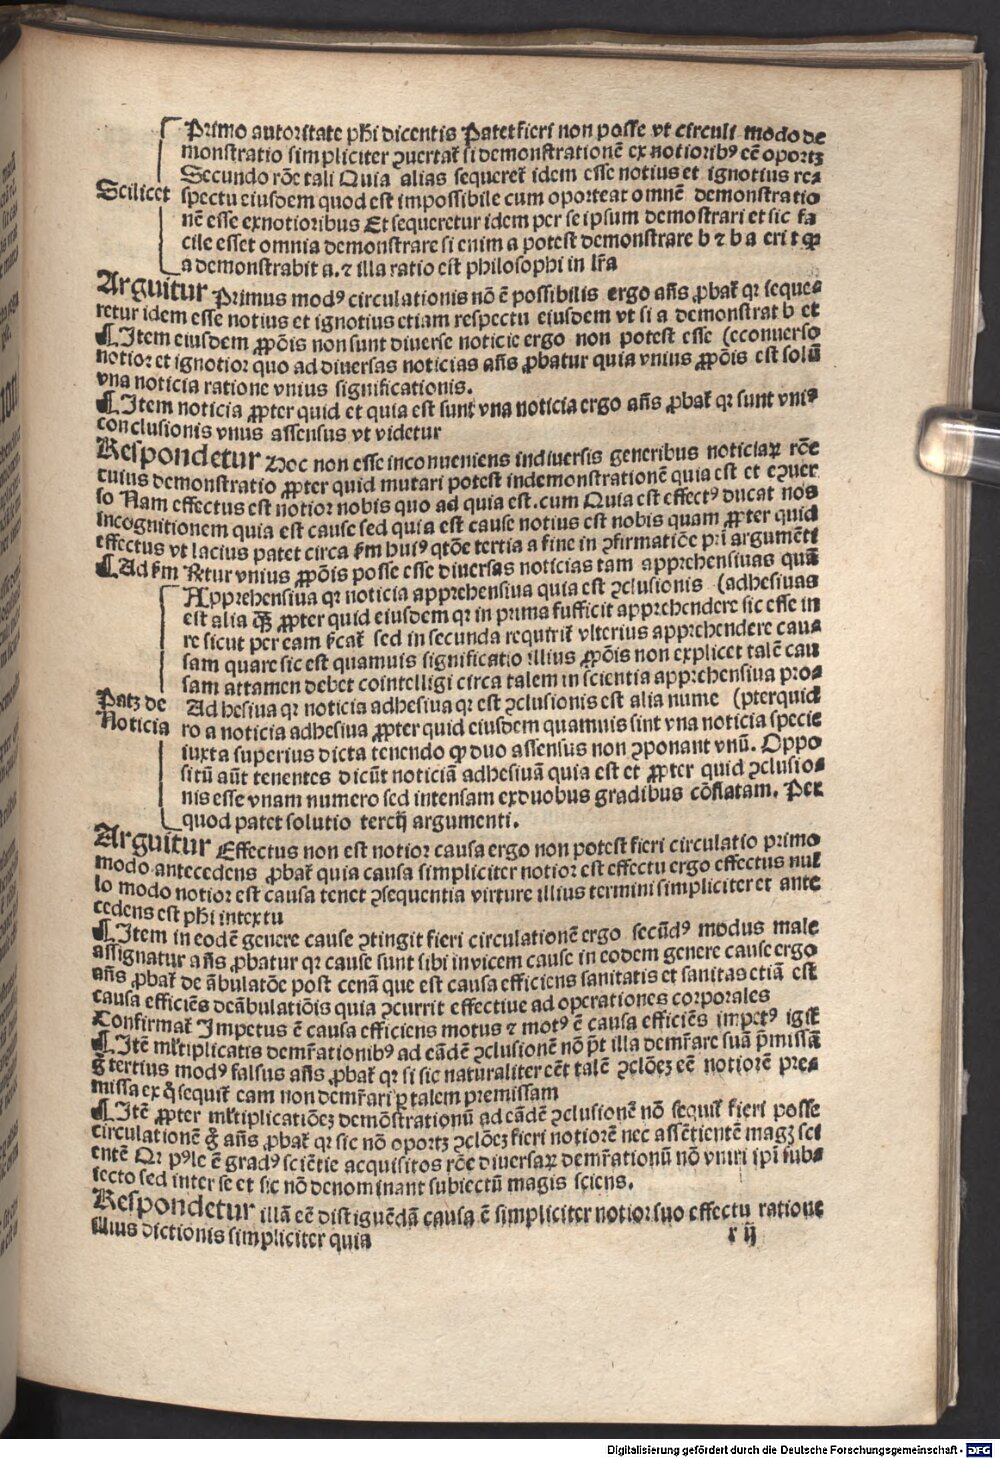 Primo autoritate phi dicentis Patet fieri non posse vt circuli modo de
monstratio simpliciter ꝯuertat̄ si demonstrationē ex notioribꝰ eē oportꝫ
Secundo rōe tali Quia alias sequeret̄ idem esse notius et ignotius re⸗
Scilicet spectu eiusdem quod est impossibile cum oporteat omnē demonstratio
nē esse exnotioribus Et sequeretur idem per se ipsum demostrari et sic fa
cile esset omnia demonstrare si enim a potest demonstrare b ⁊ b a erit ꝙ
a demonstrabit a. ⁊ illa ratio est philosophi in lr̄a
Arguitur Primus modꝰ circulationis nō ē possibilis ergo an̄s ꝓbat̄ qꝛ seque⸗
retur idem esse notius et ignotius etiam respectu eiusdem vt si a demonstrat b et
¶Item eiusdem ꝓpōis non sunt diuerse noticie ergo non potest esse (econuerso
notior et ignotior quo ad diuersas noticias an̄s ꝓbatur quia vnius ꝓpōis est solū
vna noticia ratione vnius significationis.
¶Item noticia ꝓpter quid et quia est sunt vna noticia ergo an̄s ꝓbat̄ qꝛ sunt vniꝰ
conclusionis vnus assensus vt videtur
Respondetur Hoc non esse inconueniens indiuersis generibus noticiaꝝ rōe
cuius demonstratio ꝓpter quid mutari potest indemonstrationē quia est et eꝯuer
so Nam effectus est notior nobis quo ad quia est. cum Quia est effectꝰ ducat nos
incognitionem quia est cause sed quia est cause notius est nobis quam ꝓpter quid
effectus vt lacius patet circa fm̄ huiꝰ qtōe tertia a fine in ꝯfirmatiōe pri argumēti
¶Ad fm̄ Rn̄tur vnius ꝓpōis posse esse diuersas noticias tam apprehensiuas quā
Apprehensiua qꝛ noticia apprehensiua quia est ꝯclusionis (adhesiuas
est alia ꝓpter quid eiusdem qꝛ in prima sufficit apprehendere sic esse in
re sicut per eam sed in secunda requirit̄ vlterius apprehendere cau⸗
sam quare sic est quamuis significatio illius ꝓpōis non explicet talē cau
sam attamen debet cointelligi circa talem in scientia apprehensiua pro⸗
Patꝫ de Ad hesiua qꝛ noticia adhesiua qꝛ est ꝯclusionis est alia nume (pterquid
Noticia ro a noticia adhesiua ꝓpter quid eiusdem quamuis sint vna noticia specie
iuxta superius dicta tenendo ꝙ duo assensus non ꝯponant vnū. Oppo
sitū aūt tenentes dicūt noticiā adhesiuā quia est et ꝓpter quid ꝯclusio⸗
nis esse vnam numero sed intensam exduobus gradibus cōflatam. Per
quod patet solutio tercij argumenti.
Arguitur Effectus non est notior causa ergo non potest fieri circulatio primo
modo antecedens ꝓbat̄ quia causa simpliciter notior est effectu ergo effectus nul
lo modo notior est causa tenet ꝯsequentia virture illius termini simpliciter et ante
cedens est phi intextu
¶Item in eodē genere cause ꝯtingit fieri circulationē ergo secūdꝰ modus male
assignatur an̄s ꝓbatur qꝛ cause sunt sibi inuicem cause in eodem genere cause ergo
an̄s ꝓbat̄ de ābulatōe post cenā que est causa efficiens sanitatis et sanitas etiā est
causa efficiēs deābulatiōis quia ꝯcurrit effectiue ad operationes corporales
Confirmat̄ Impetus ē causa efficiens motus ⁊ motꝰ ē causa efficiēs impetꝰ igit̄
¶Itē ml̄tiplicatis demr̄ationibꝰ ad eādē ꝯclusionē nō pt̄ illa demr̄are suā p̄missā
g̊ tertius modꝰ falsus an̄s ꝓbat̄ qꝛ si sic naturaliter eēt talē ꝯclōeꝫ eē notiorē pre⸗
missa ex q̊ sequit̄ eam non demr̄ari ꝑ talem premissam
¶Itē ꝓpter ml̄tiplicatiōeꝫ demōstrationū ad eādē ꝯclusionē nō sequit̄ fieri posse
circulationē g̊ an̄s ꝓbat̄ qꝛ sic nō oportꝫ ꝯclōeꝫ fieri notiorē nec assētientē magꝫ sci
entē Qꝛ ē gradꝰ sciētie acquisitos rōe diuersaꝝ demr̄ationū nō vniri ip̄i sub⸗
iecto sed inter se et sic nō denominant subiectū magis sciens.
Respondetur illā eē distiguēdā causa ē simpliciter notior suo effectu ratione
illius dictionis simpliciter quia
r ij
Digitalisierung gefördert durch die Deutsche Forschungsgemeinschaft - DFG